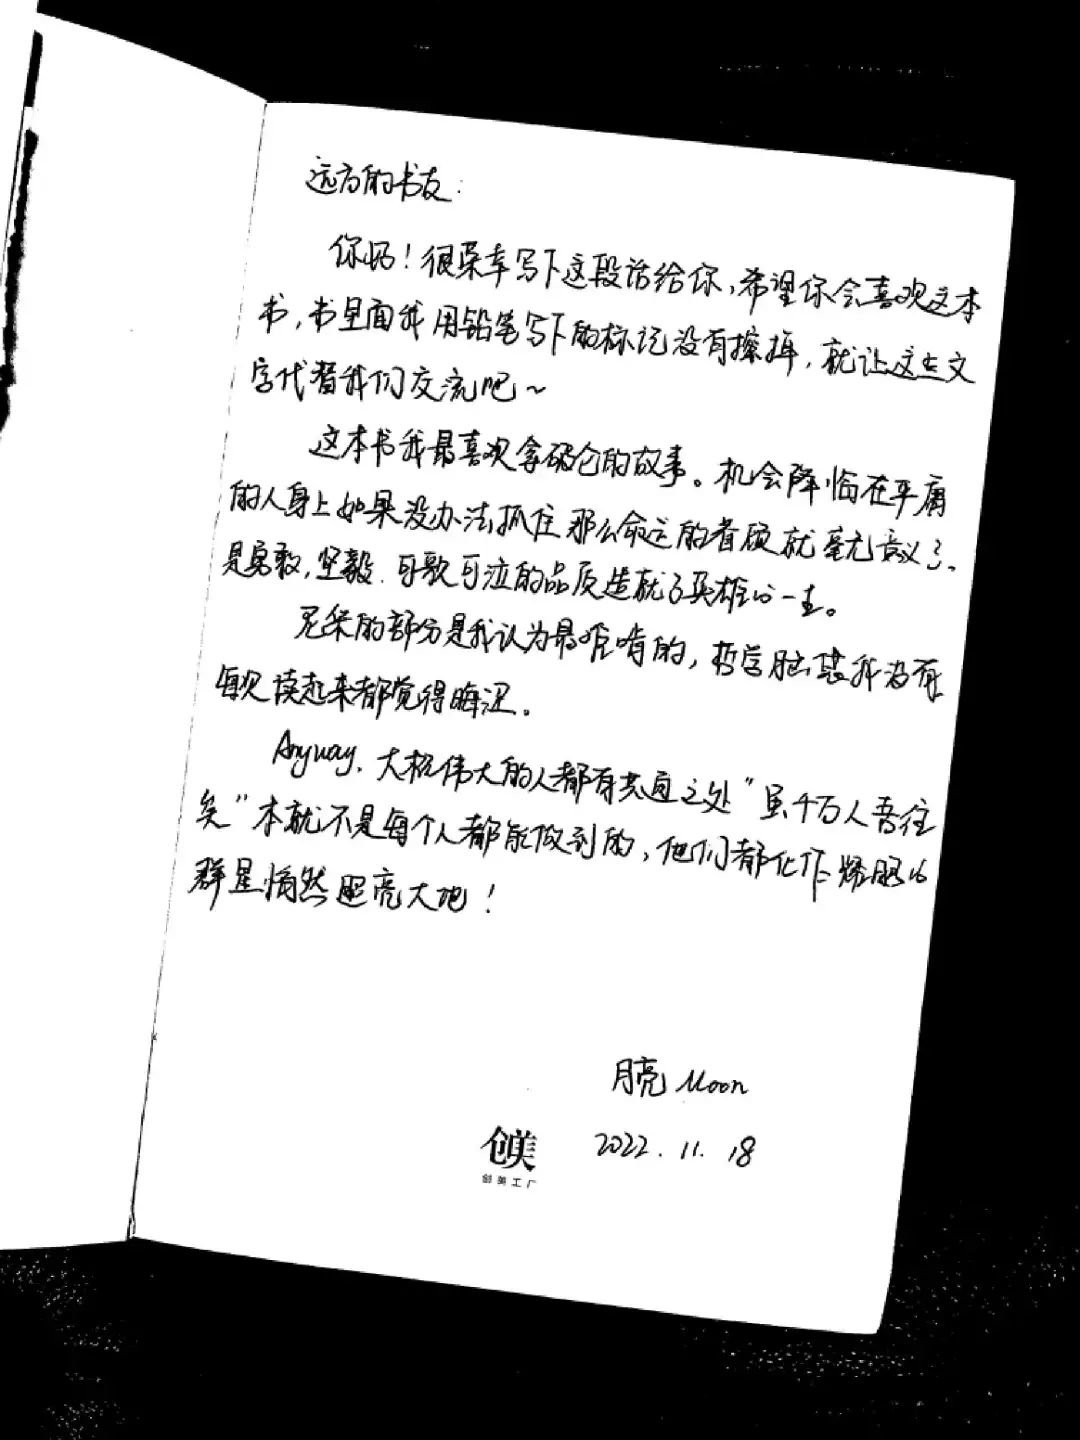 远方的书友：
你好！很荣幸写下这段话给你，希望你会喜欢这本
书，书里面我用铅笔写下的标记没有擦掉，就让这些文
字代替我们交流吧～
这本书我最喜欢拿破仑的故事。机会降临在平庸
的人身上如果没办法抓住那么命运的眷顾就毫无意义了。
是勇敢，坚毅．可歌可泣的品质造就了英雄的一生。
尼采的部分是我认为最难啃的，哲学脑袋我没有
每次读起来都觉得晦涩。
Anyway. 大抵伟大的人都有共通之处"虽千万人吾往
矣"本就不是每个人都能做到的，他们都化作耀眼的
群星悄然照亮大地！
月亮 Moon
2022.11.18
创美
创美工厂